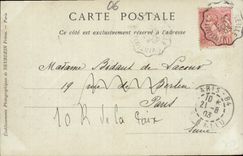 06
CARTE POSTALE
Ce côté est exclusivement réservé à l'adresse
Madame Bidaut de
19 rue de Berlin
Paris
10 R de la Paix
Seine
PARIS
10
21 -8
03
Etablissements Photographiques de NEURDEIN Frères. - Paris